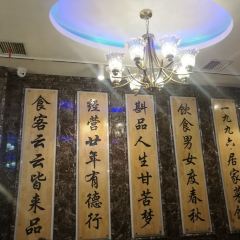 一九九六居家
饮食男女度春秋
斟品人生甘苦梦
经营廿年有德行
食客云云皆来品